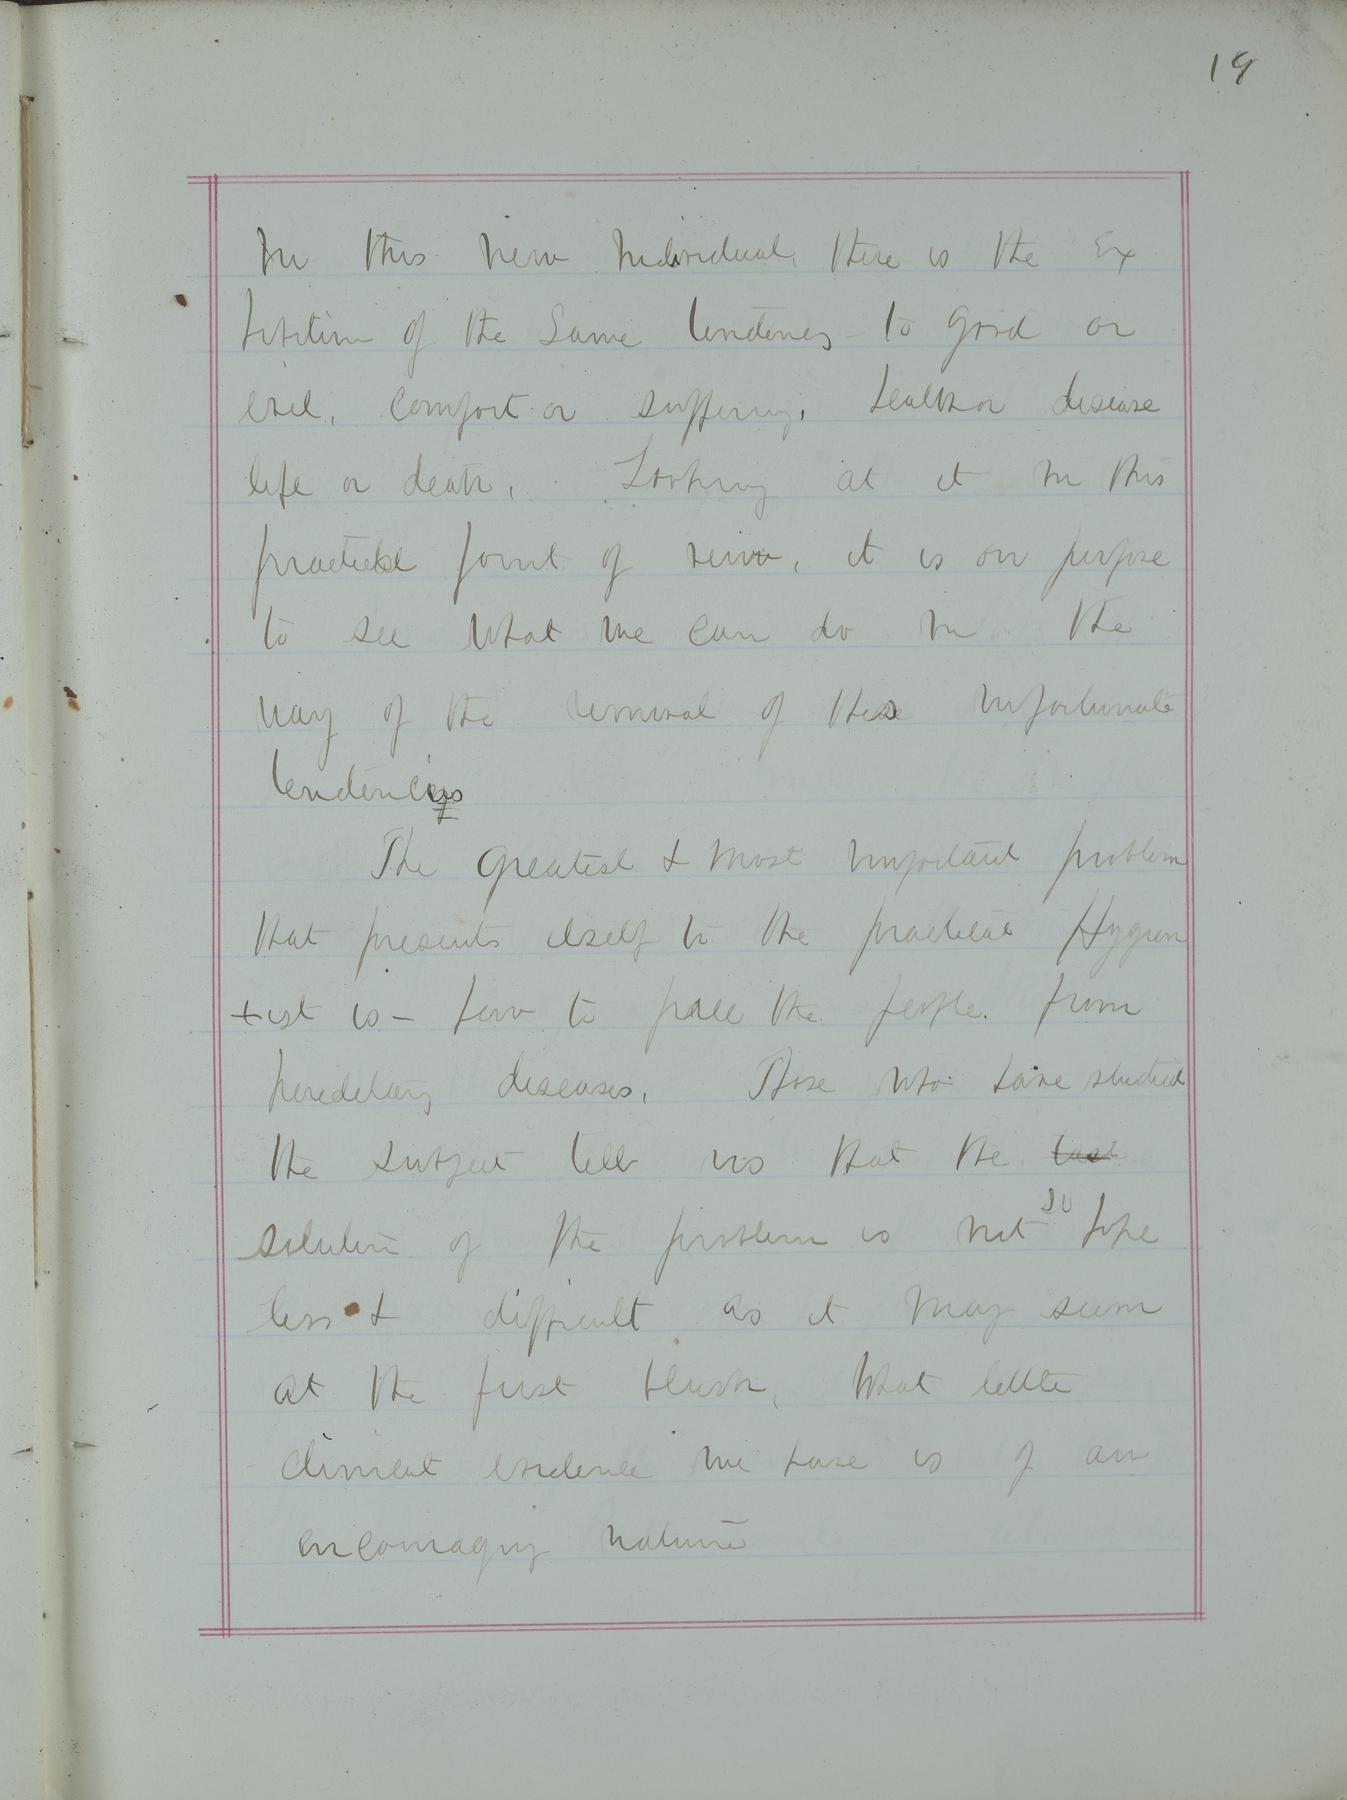 19
In this new individual, there is the Ex
hibition of the Same tendency - to good or
evil, comfort or suffering, health or disease
life or death, Looking at it in this
practical point of view, it is our purpose
to see what we can do in the
way of the removal of these unfortunate
tendencies
The greatest & most important problem
that presents itself to the practical Hygien
+ist is - how to free the people from
hereditary diseases, Those who have studied
the subject tell us that the
solution of the problem is not so hope
less & difficult as it may seem
at the first blush, What little
clinical evidence we have is of an
encouraging nature